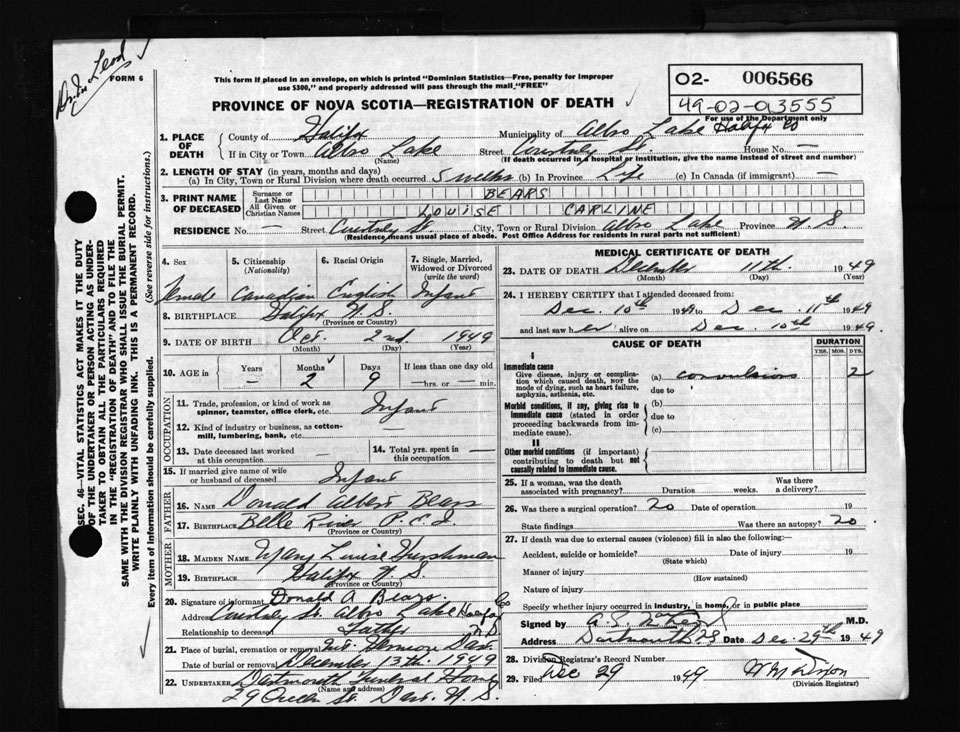 FORM 6
This form if placed in an envelope, on which is printed "Dominion Statistics—Free, penalty for Improper
use $300," and properly addressed will pass through the mail "FREE"
02- 006566
49-02-013555
For use of the Department only
PROVINCE OF NOVA SCOTIA—REGISTRATION OF DEATH
1. PLACE OF DEATH
County of Halifax Municipality of Albro Lake Halifx Co
If in City or Town Albro Lake Street St. House No. —
(Name) (If death occurred in a hospital or institution, give the name instead of street and number)
2. LENGTH OF STAY (in years, months and days)
(a) In City, Town or Rural Division where death occurred 5 weeks (b) In Province Life (c) In Canada (if immigrant) —
3. PRINT NAME OF DECEASED
Surname or Last Name BEARS
All Given or Christian Names LOUISE CARLINE
RESIDENCE No. — Street St. City, Town or Rural Division Albro Lake Province N. S.
(Residence means usual place of abode. Post Office Address for residents in rural parts not sufficient)
4. Sex
Female
5. Citizenship (Nationality)
Canadian
6. Racial Origin
English
7. Single, Married, Widowed or Divorced (write the word)
Infant
8. BIRTHPLACE Halifax N.S.
(Province or Country)
9. DATE OF BIRTH Oct. 2nd. 1949
(Month) (Day) (Year)
10. AGE in Years — Months 2 Days 9 If less than one day old —hrs. or — min.
OCCUPATION
11. Trade, profession, or kind of work as spinner, teamster, office clerk, etc. Infant
12. Kind of industry or business, as cotton-mill, lumbering, bank, etc. —
13. Date deceased last worked at this occupation —
14. Total yrs. spent in this occupation. —
15. If married give name of wife or husband of deceased Infant
FATHER
16. NAME Donald Albert Bears
17. BIRTHPLACE Belle River P.E.I.
(Province or Country)
MOTHER
18. MAIDEN NAME Mary Louise Hurshman
19. BIRTHPLACE Halifax N.S.
(Province or Country)
20. Signature of informant Donald A Bears.
Address St. Albro Lake Halifax Co N.S.
Relationship to deceased Father
21. Place of burial, cremation or removal Mt. Hermon Dart.
Date of burial or removal December 13th. 1949
22. UNDERTAKER Dartmouth Funeral Home
(Name and address)
29 Queen St. Dart. N.S.
MEDICAL CERTIFICATE OF DEATH
23. DATE OF DEATH December 11th. 1949
(Month) (Day)
24. I HEREBY CERTIFY that I attended deceased from:
Dec. 10th 1949 to Dec. 11th 1949
and last saw her alive on Dec. 10th 1949.
CAUSE OF DEATH
DURATION
YRS. MOS. DYS.
I
Immediate cause
Give disease, injury or complication which caused death, NOT the mode of dying, such as heart failure, asphyxia, asthenia, etc.
(a) convulsions 2
due to
Morbid conditions, if any, giving rise to immediate cause (stated in order proceeding backwards from immediate cause).
(b)
due to
(c)
II
Other morbid conditions (if important) contributing to death but not causally related to immediate cause.
25. If a woman, was the death associated with pregnancy? Duration weeks. Was there a delivery?
26. Was there a surgical operation? no Date of operation 19
State findings Was there an autopsy? no.
27. If death was due to external causes (violence) fill in also the following:—
Accident, suicide or homicide? Date of injury 19
(State which)
Manner of injury
(How sustained)
Nature of injury
Specify whether injury occurred in industry, in home, or in public place
Signed by M.D.
Address Dartmouth N.S Date Dec. 29th 1949
28. Division Registrar's Record Number
29. Filed Dec 29 1949
(Division Registrar)
SEC. 46—VITAL STATISTICS ACT MAKES IT THE DUTY
OF THE UNDERTAKER OR PERSON ACTING AS UNDER-
TAKER TO OBTAIN ALL THE PARTICULARS REQUIRED
IN THE "REGISTRATION OF DEATH" AND TO FILE THE
SAME WITH THE DIVISION REGISTRAR WHO SHALL ISSUE THE BURIAL PERMIT.
WRITE PLAINLY WITH UNFADING INK. THIS IS A PERMANENT RECORD.
Every item of information should be carefully supplied. (See reverse side for instructions.)